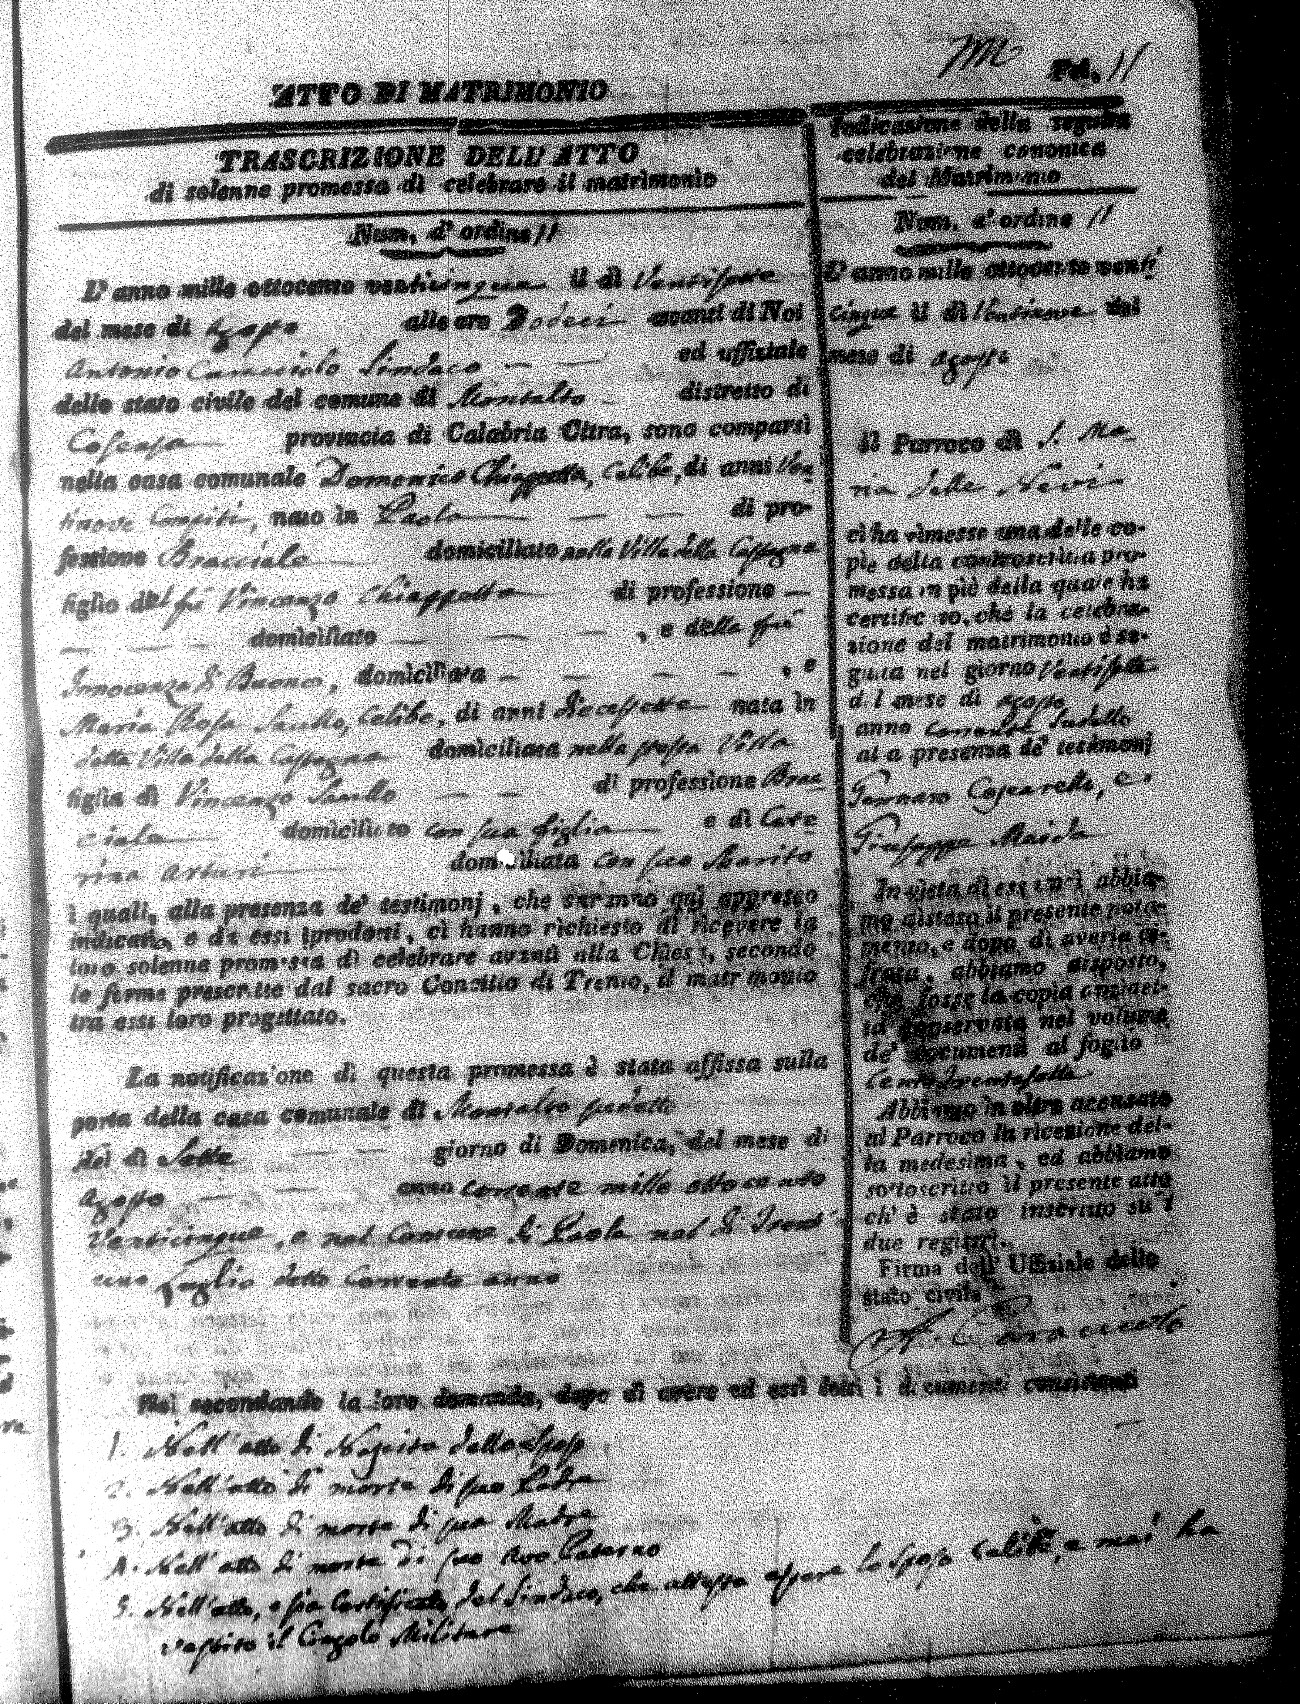 Fol. 11
ATTO DI MATRIMONIO
TRASCRIZIONE DELL' ATTO
di solenne promessa di celebrare il matrimonio
Num. d' ordine 11
L' anno mille ottocento venticinque il dì Ventisette
del mese di Agosto alle ore Dodeci avanti di Noi
Antonio Caracciolo Sindaco ed uffiziale
dello stato civile del comune di Montalto distretto di
Cosenza provincia di Calabria Citra, sono comparsi
nella casa comunale Domenico Chiappetta, Celibe, di anni Ven
tinove Compiti, nato in Paola di pro-
fessione Bracciale domiciliato nella Villa della
figlio del fu Vincenzo Chiappetta di professione —
— — — domiciliato — — — , e della fu
Innocenza Buono, domiciliata — — — — , e
Maria Rosa Saullo, Celibe, di anni diecesette nata in
detta Villa della domiciliata nella stessa Villa
figlia di Vincenzo Saullo — — di professione Brac
ciale domiciliato con sua figlia e di Cate
rina Arturi domiciliata con suo Marito
i quali, alla presenza de' testimonj, che saranno quì appresso
indicati, e da essi prodotti, ci hanno richiesto di ricevere la
loro solenne promessa di celebrare avanti alla Chiesa, secondo
le forme prescritte dal sacro Concilio di Trento, il matrimonio
tra essi loro progettato.
La notificazione di questa promessa è stata affissa sulla
porta della casa comunale di Montalto
del dì Sette — — giorno di Domenica, del mese di
Agosto — — anno corrente mille otto cento
Venticinque, e nel Comune di Paola nel dì Trent'
uno Luglio detto Corrente anno
Indicazione della seguita
celebrazione canonica
del Matrimonio
Num. d' ordine 11
L' anno mille ottocento venti
cinque il dì del
mese di agosto
il Parroco di S. Ma-
ria delle Nevi
ci ha rimesse una delle co-
pie della controscritta pro-
messa in piè della quale ha
certificato, che la celebra-
zione del matrimonio è se-
guita nel giorno Ventisette
del mese di agosto
anno corrente sudetto
alla presenza de' testimonj
Gennaro, e
Giuseppe Maida
In vista di essa noi abbia-
mo disteso il presente nota-
mento, e dopo di averla ci-
frata, abbiamo disposto,
che fosse la copia anzidet-
ta conservata nel volume
de' documenti al foglio
Cento trentasette
Abbiamo in oltre accusato
al Parroco la ricezione del-
la medesima, ed abbiamo
sottoscritto il presente atto
ch' è stato inserito su i
due registri.
Firma dell' Uffiziale dello
stato civile
A. Caracciolo
Noi secondando la loro domanda, dopo di avere ad essi letti i documenti consistenti
1. Nell'atto di Nascita dello sposo
2. Nell'atto di morte di suo Padre
3. Nell'atto di morte di sua Madre
4. Nell'atto di morte di suo Avo Paterno
5. Nell'atto, o sia Certificato del Sindaco, che attesta essere lo sposo Celibe, e mai ha
vestito il Cingolo Militare